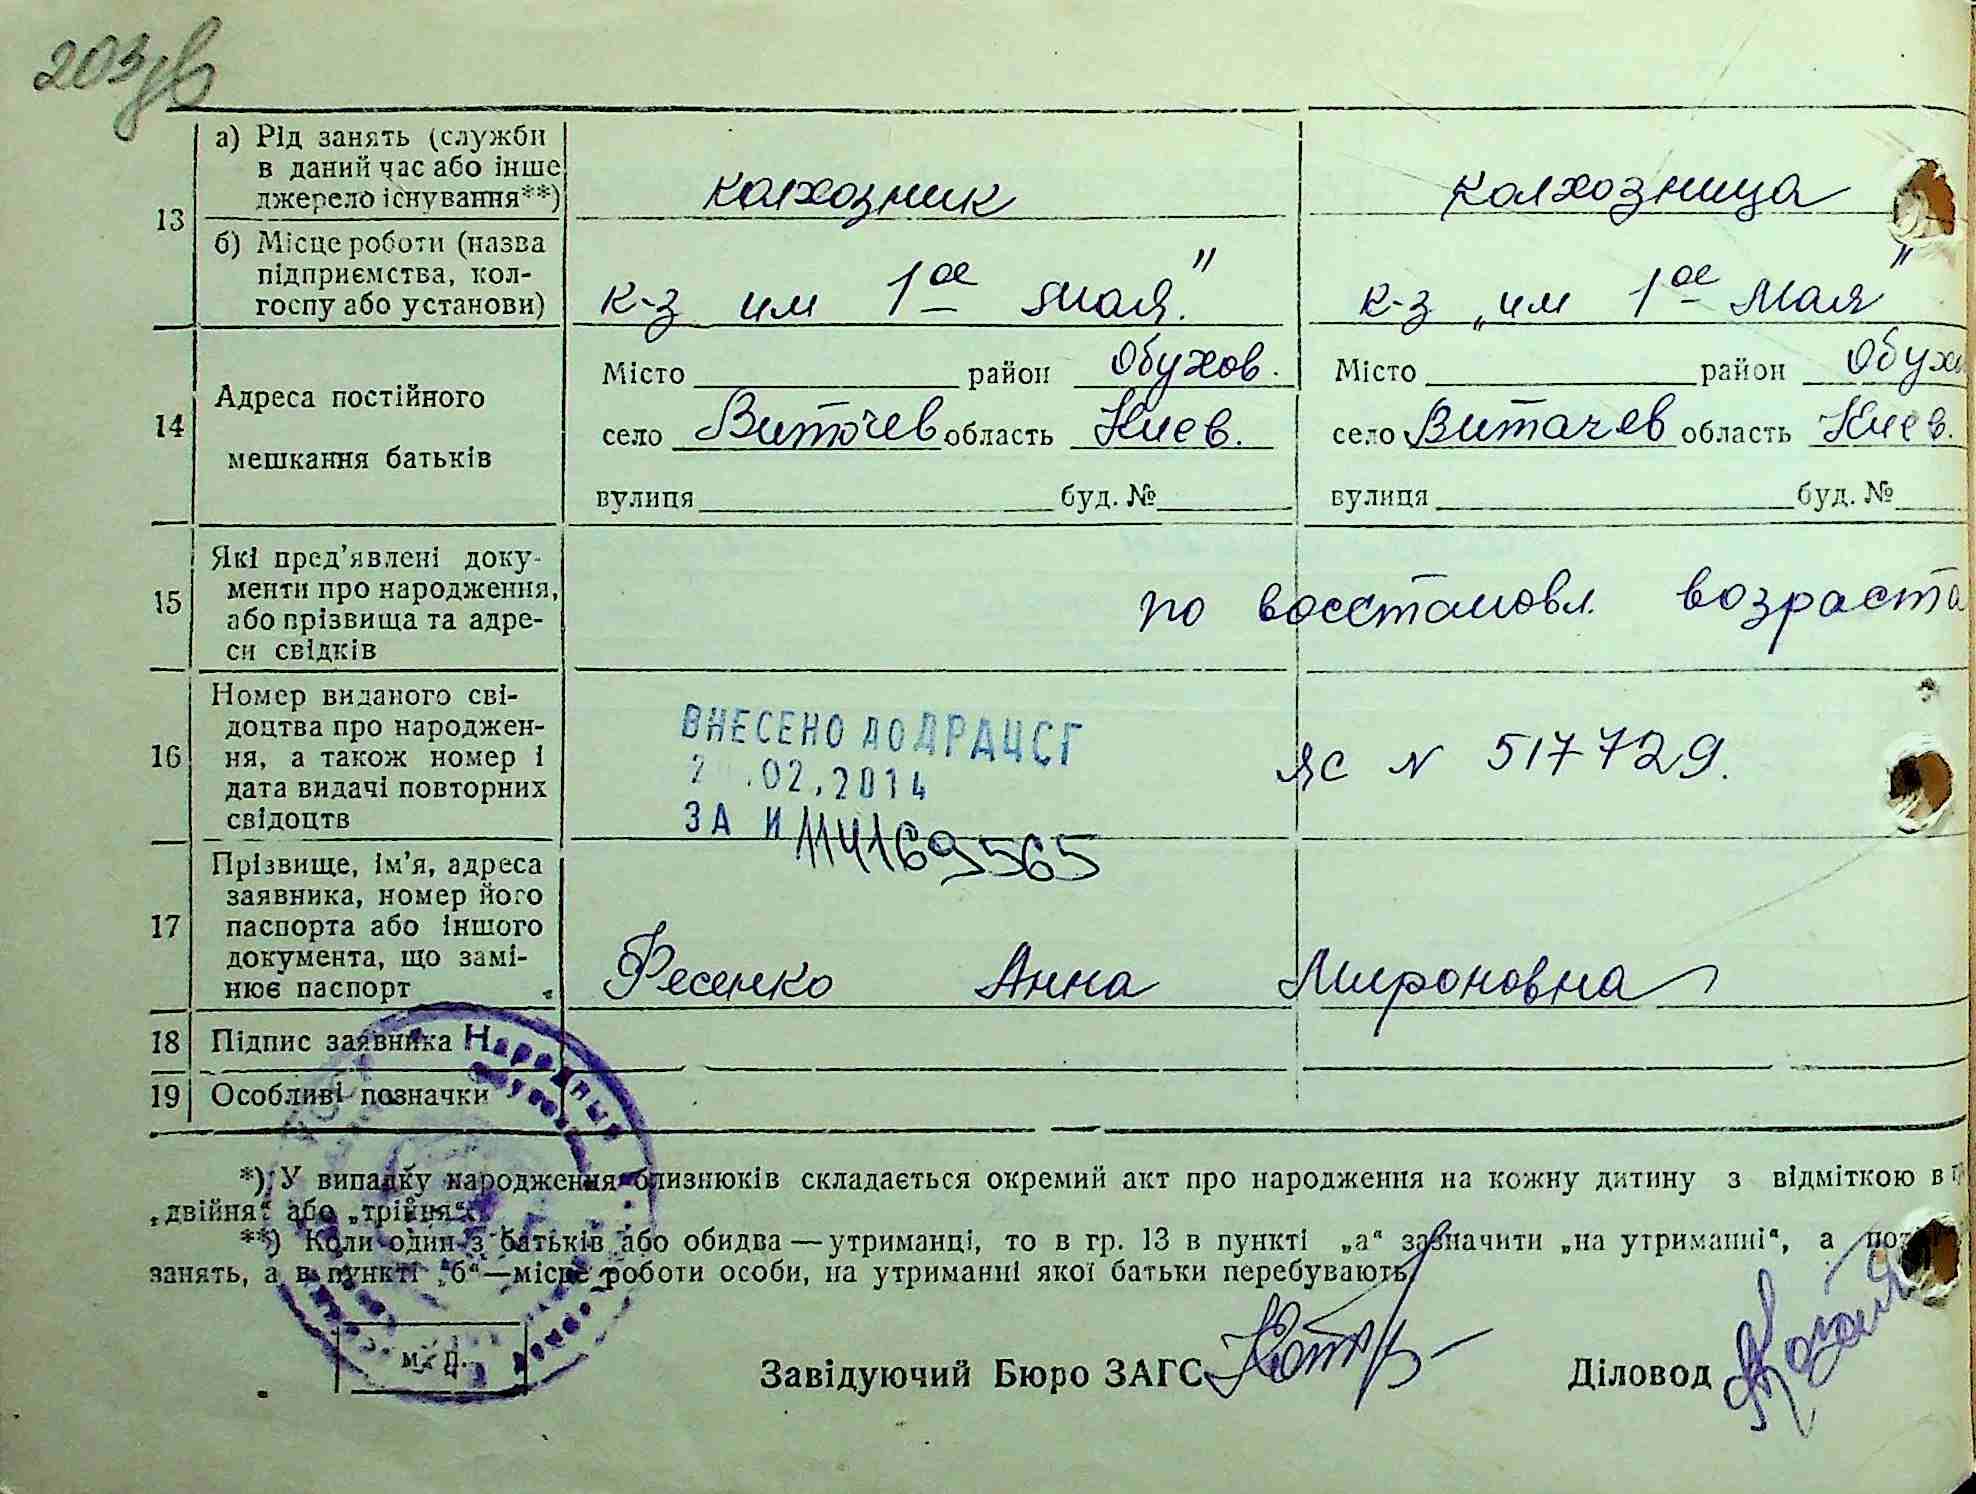 203зв
а) Рід занять (служби
в даний час або інше
джерело існування**)
колхозник
колхозница
13
б) Місце роботи (назва
підприємства, кол-
госпу або установи)
к-з им 1ое мая."
к-з „им 1ое Мая"
14
Адреса постійного
мешкання батьків
Місто район Обухов.
село Виточев область Киев.
вулиця буд. №
Місто район Обухо
село Витачев область Киев.
вулиця буд. №
15
Які пред'явлені доку-
менти про народження,
або прізвища та адре-
си свідків
по восстановл. возраста
16
Номер виданого сві-
доцтва про народжен-
ня, а також номер і
дата видачі повторних
свідоцтв
ВНЕСЕНО ДО ДРАЦСГ
2 .02.2014
ЗА И 114169565
ЯС N 517729.
17
Прізвище, ім'я, адреса
заявника, номер його
паспорта або іншого
документа, що замі-
нює паспорт
Фесенко Анна Мироновна
18 Підпис заявника
19 Особливі позначки
Народный
*) У випадку народження близнюків складається окремий акт про народження на кожну дитину з відміткою в
„двійня" або „трійня".
**) Коли один з батьків або обидва — утриманці, то в гр. 13 в пункті „а" зазначити „на утриманні", а
занять, а в пункті „б"—місце роботи особи, на утриманні якої батьки перебувають.
м. п.
Завідуючий Бюро ЗАГС
Діловод